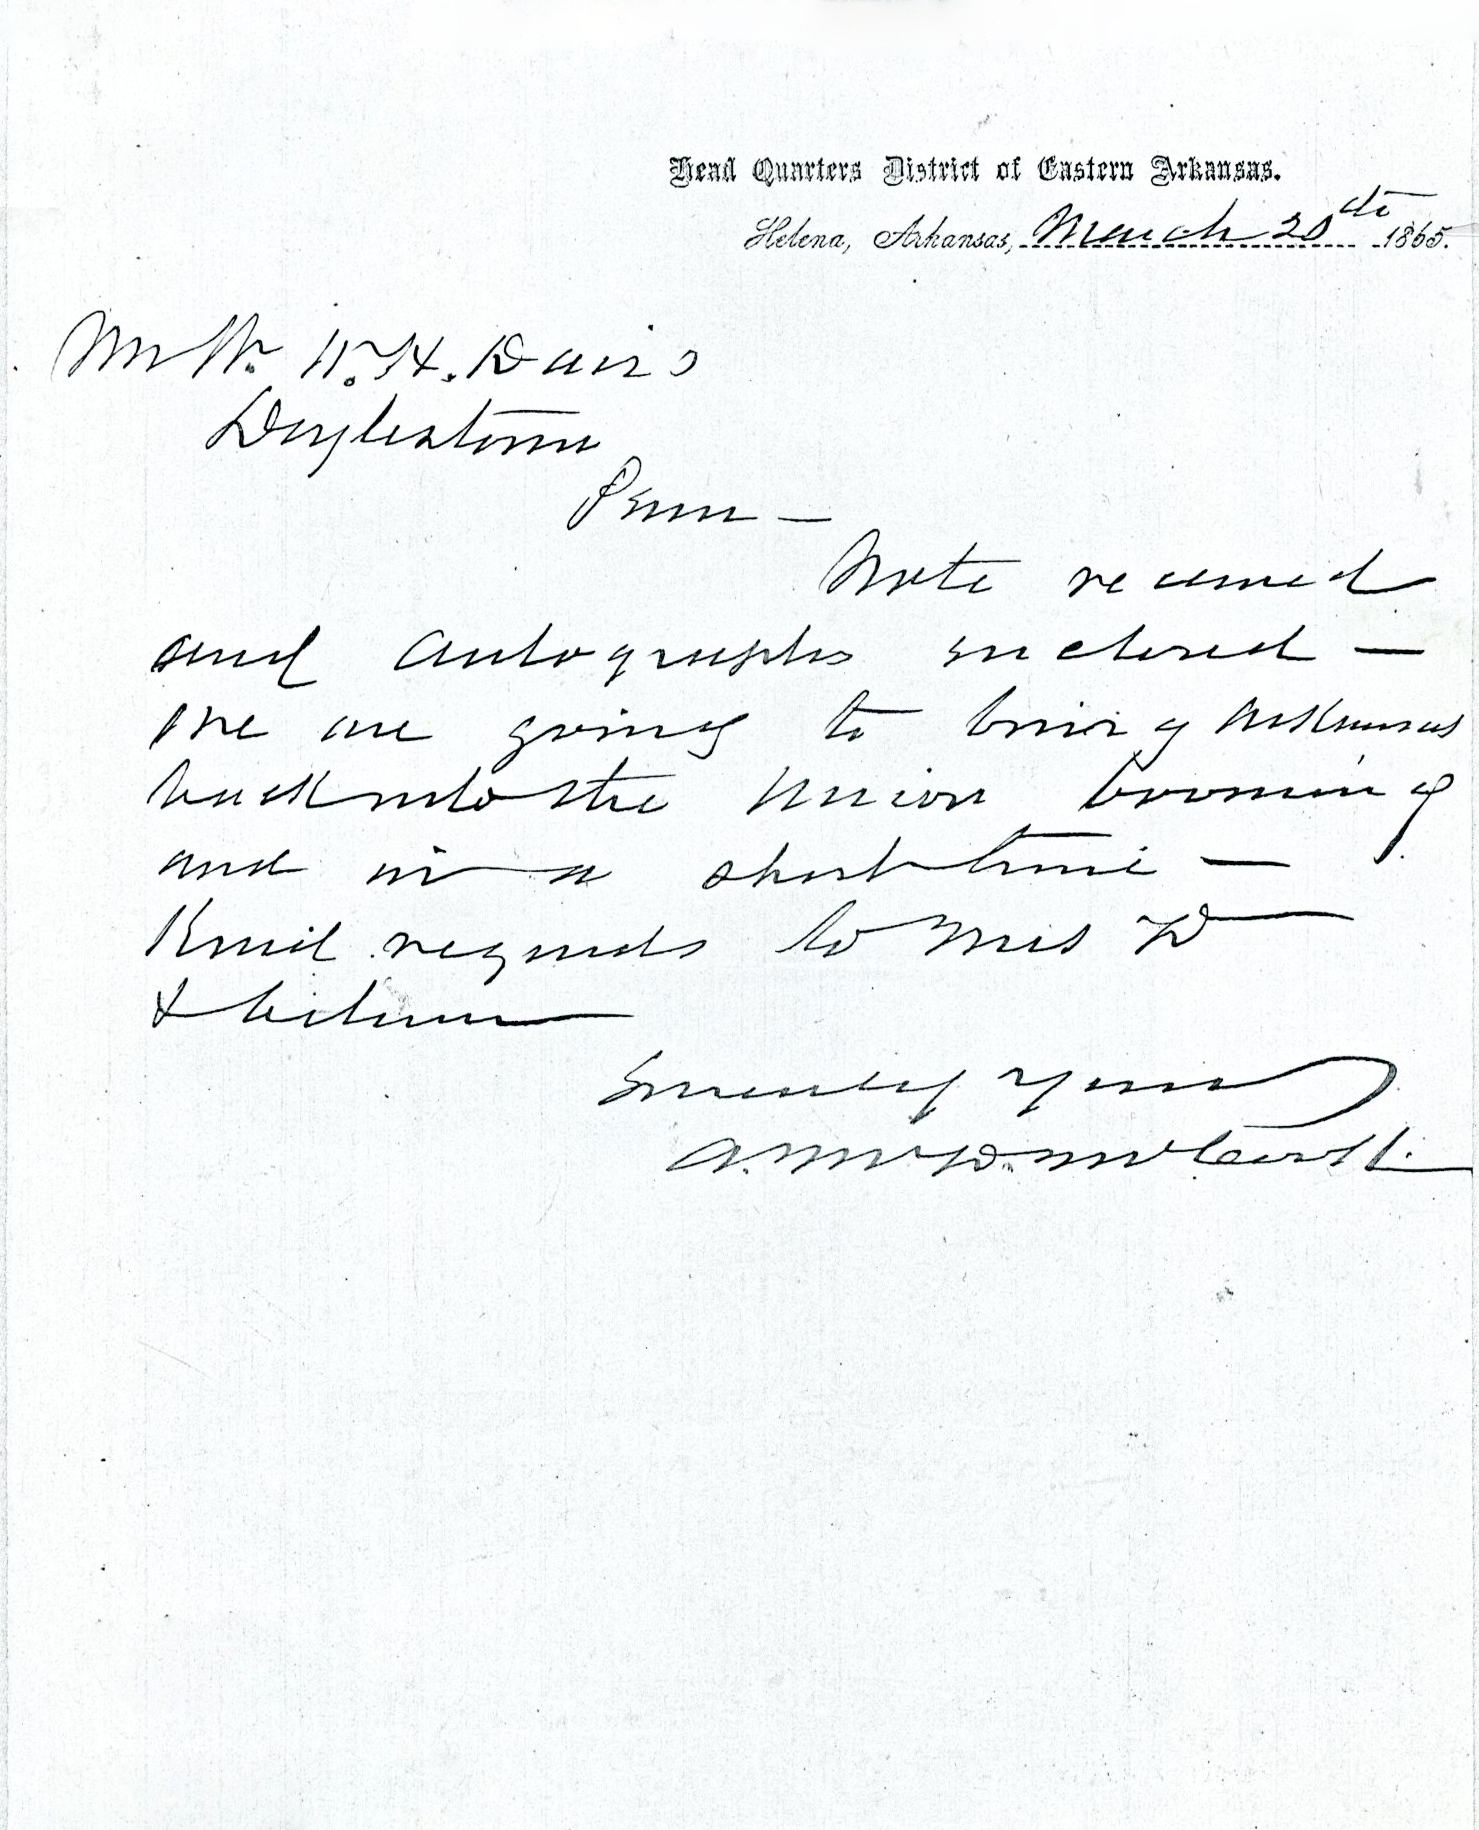 Head Quarters District of Eastern Arkansas.
Helena, Arkansas, March 20th 1865.
W. H. Davis
Doylestown
Penn —
Note received
and autographs enclosed —
We are going to bring Arkansas
back into the Union booming
and in a short time —
Kind regards to Mrs D—
&
Sincerely Yours
A. McD. McCook